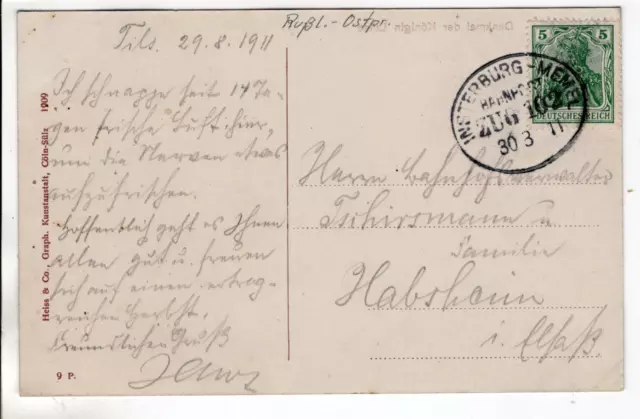 Rußl.-Ostpr.
Denkmal der Königin
Tils. 29.8.1911
Ich schnappe seit 14 Ta-
gen frische Luft hier,
um die Nerven etwas
aufzufrischen.
Hoffentlich geht es Ihnen
allen gut u. freuen
sich auf einen ertrag-
reichen Herbst.
Freundlichen Gruß
9 P.
Heiss & Co., Graph. Kunstanstalt, Cöln-Sülz 1909
5 5
DEUTSCHES REICH
INSTERBURG-MEMEL
BAHNPOST
ZUG
30 8 11
Herrn Bahnhofsverwalter
Tschirsmann u
Familie
Habsheim
i. Elsaß